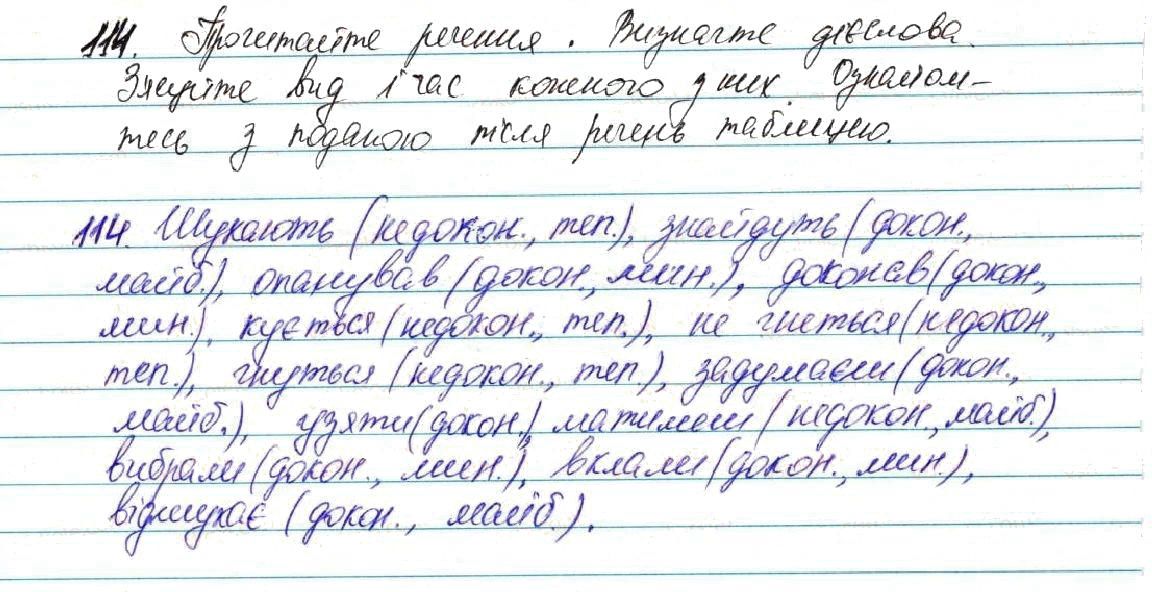 114. Прочитайте речення. Визначте дієслова.
З'ясуйте вид і час кожного з них. Ознайом-
тесь з поданою після речень таблицею.
114. Шукають (недокон., теп.), знайдуть (докон.,
майб.), опанував (докон., мин.), доконав (докон.,
мин.), кується (недокон., теп.), не гнеться (недокон.,
теп.), гнуться (недокон., теп.), задумаєш (докон.,
майб.), узяти (докон.), матимеш (недокон., майб.),
вибрали (докон., мин.), вклали (докон., мин.),
відшукає (докон., майб.).